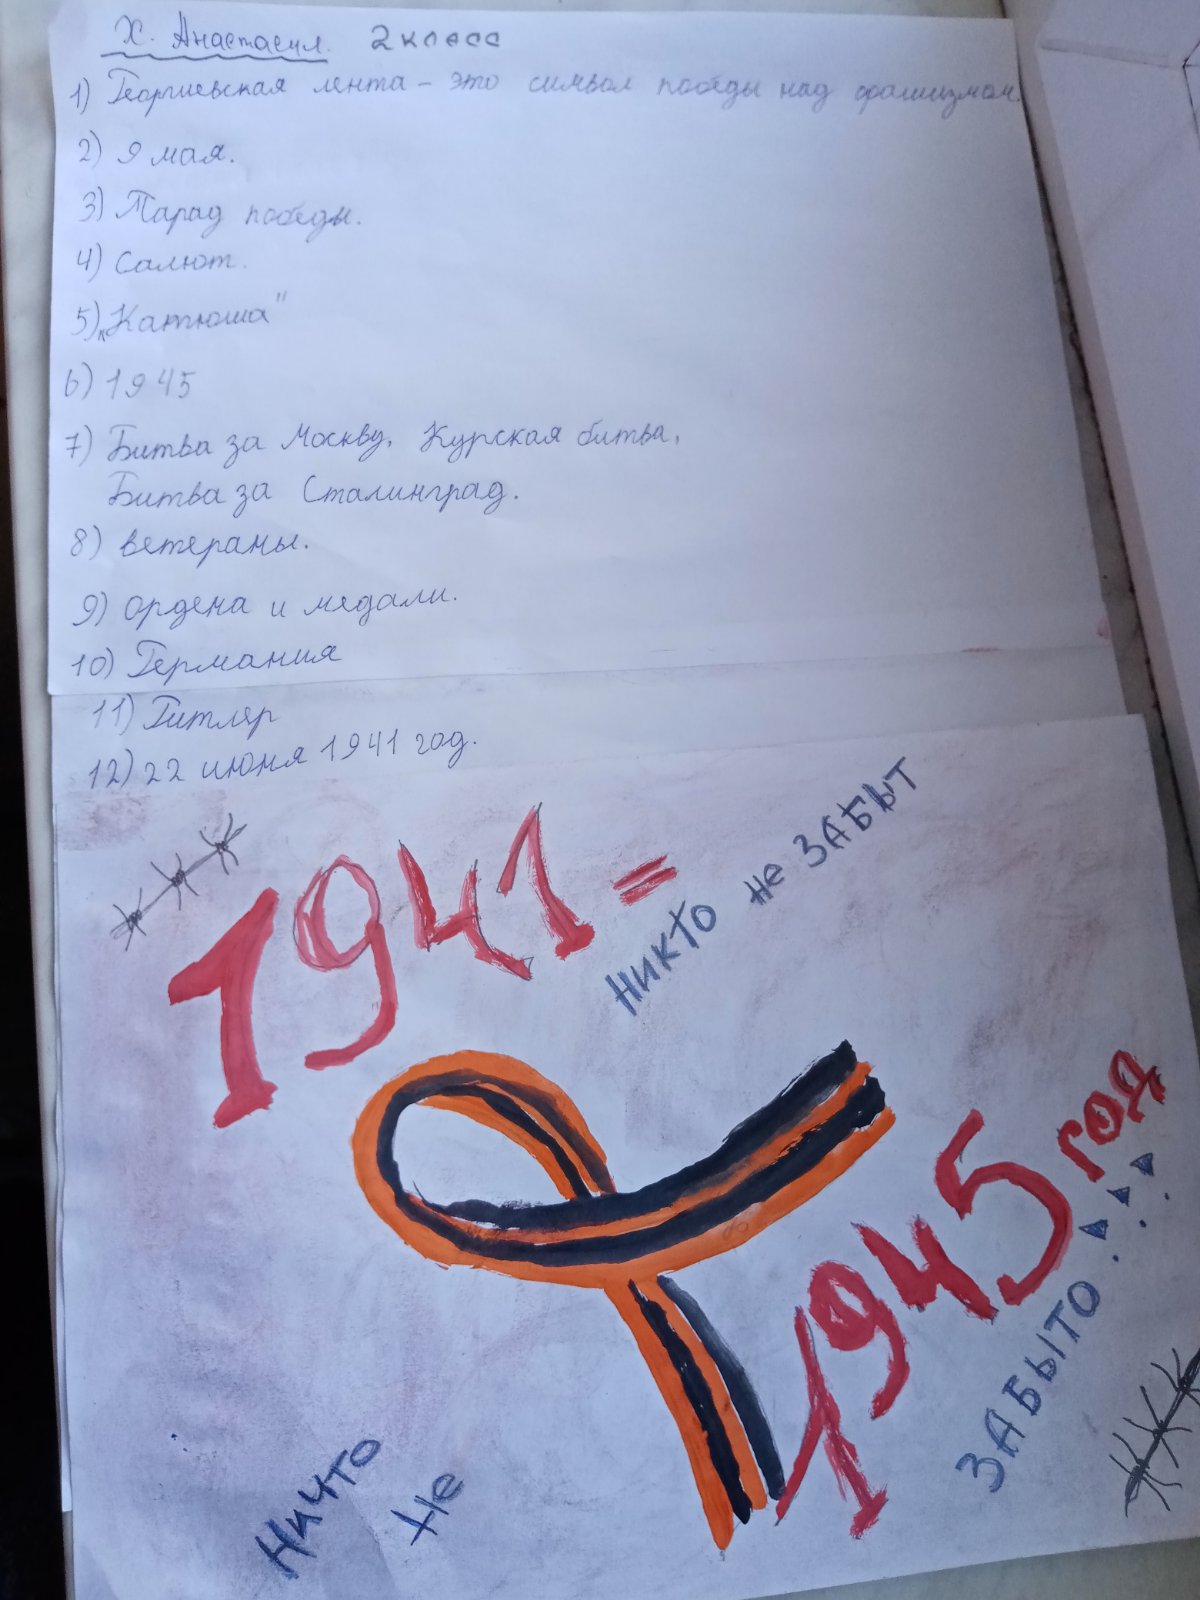 Х. Анастасия. 2 класс
1) Георгиевская лента - это символ победы над фашизмом.
2) 9 мая.
3) Парад победы.
4) Салют.
5) „Катюша"
6) 1945
7) Битва за Москву, Курская битва,
Битва за Сталинград.
8) ветераны.
9) ордена и медали.
10) Германия
11) Гитлер
12) 22 июня 1941 год.
1941 =
НИКТО НЕ ЗАБЫТ
1945 год
НИЧТО
НЕ
ЗАБЫТО...